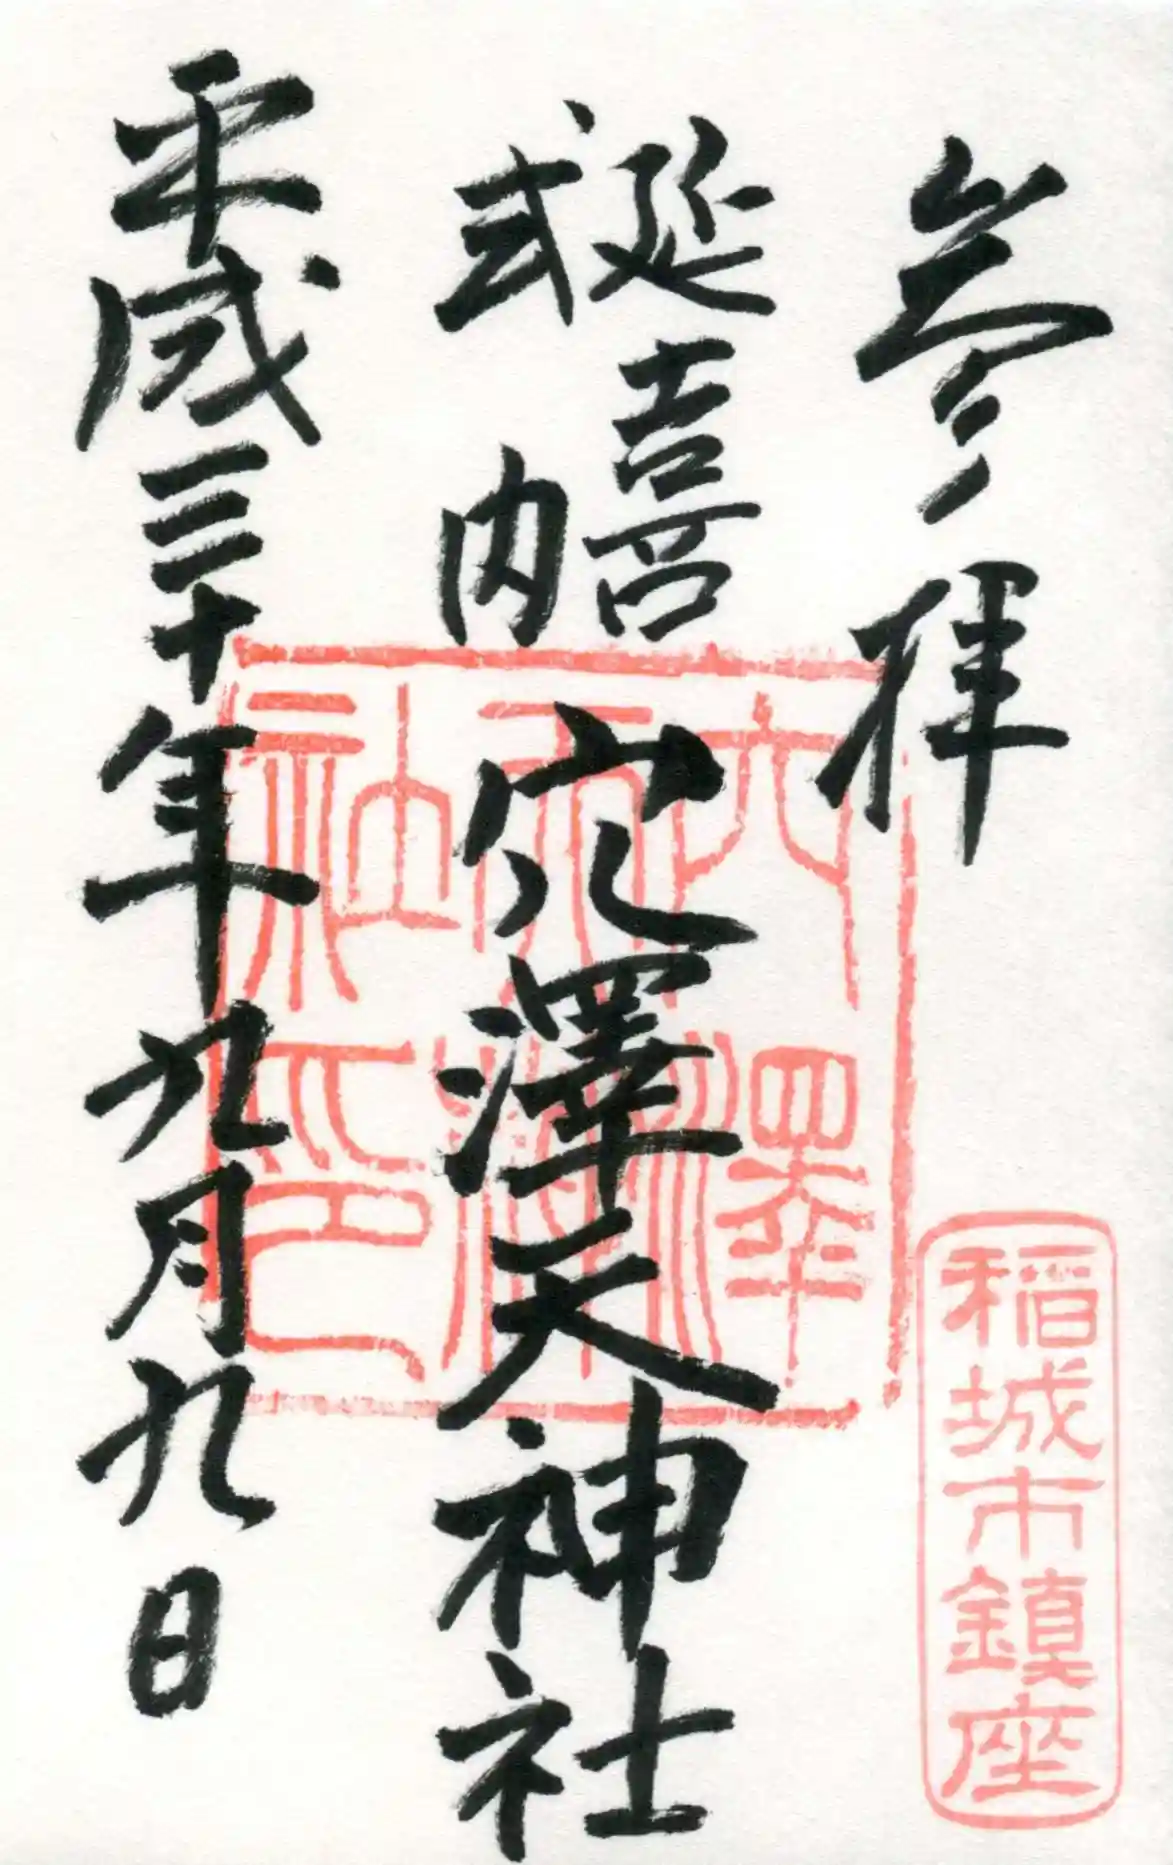 参拝
稲城市鎮座
延喜
式内
穴澤天神社
穴澤天神社印
平成三十年九月九日